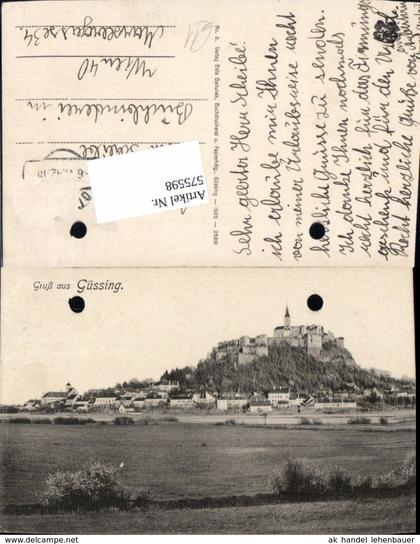 Sehr geehrter Herr Scheibel!
ich erlaube mir Ihnen
von meiner Urlaubsreise recht
herzliche Grüsse zu senden.
Ich danke Ihnen nochmals
recht herzlich für das
geschenk und für den
Recht herzliche Grüße von
No. 5. Verlag Béla Bartunek, Buchdruckerei u. Papierhdlg., Güssing — 1925 — 2589.
Buchbinderei in
Wien 40
34
Artikel Nr.
575598
Gruß aus Güssing.
ak handel lehenbauer